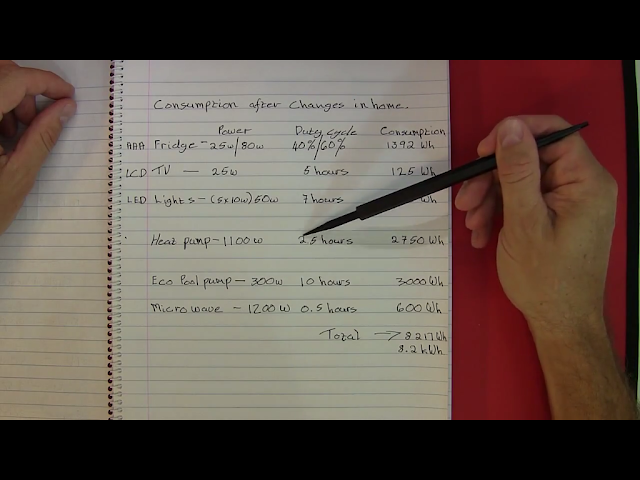 Consumption after Changes in home.
Power Duty cycle Consumption
AAA Fridge - 25w/80w 40%/60% 1392 Wh
LCD TV - 25w 5 hours 125 Wh
LED Lights - (5x10w) 50w 7 hours Wh
Heat pump - 1100w 2.5 hours 2750 Wh
Eco Pool pump - 300w 10 hours 3000 Wh
Microwave - 1200w 0.5 hours 600 Wh
Total → 8217 Wh
8.2 kWh